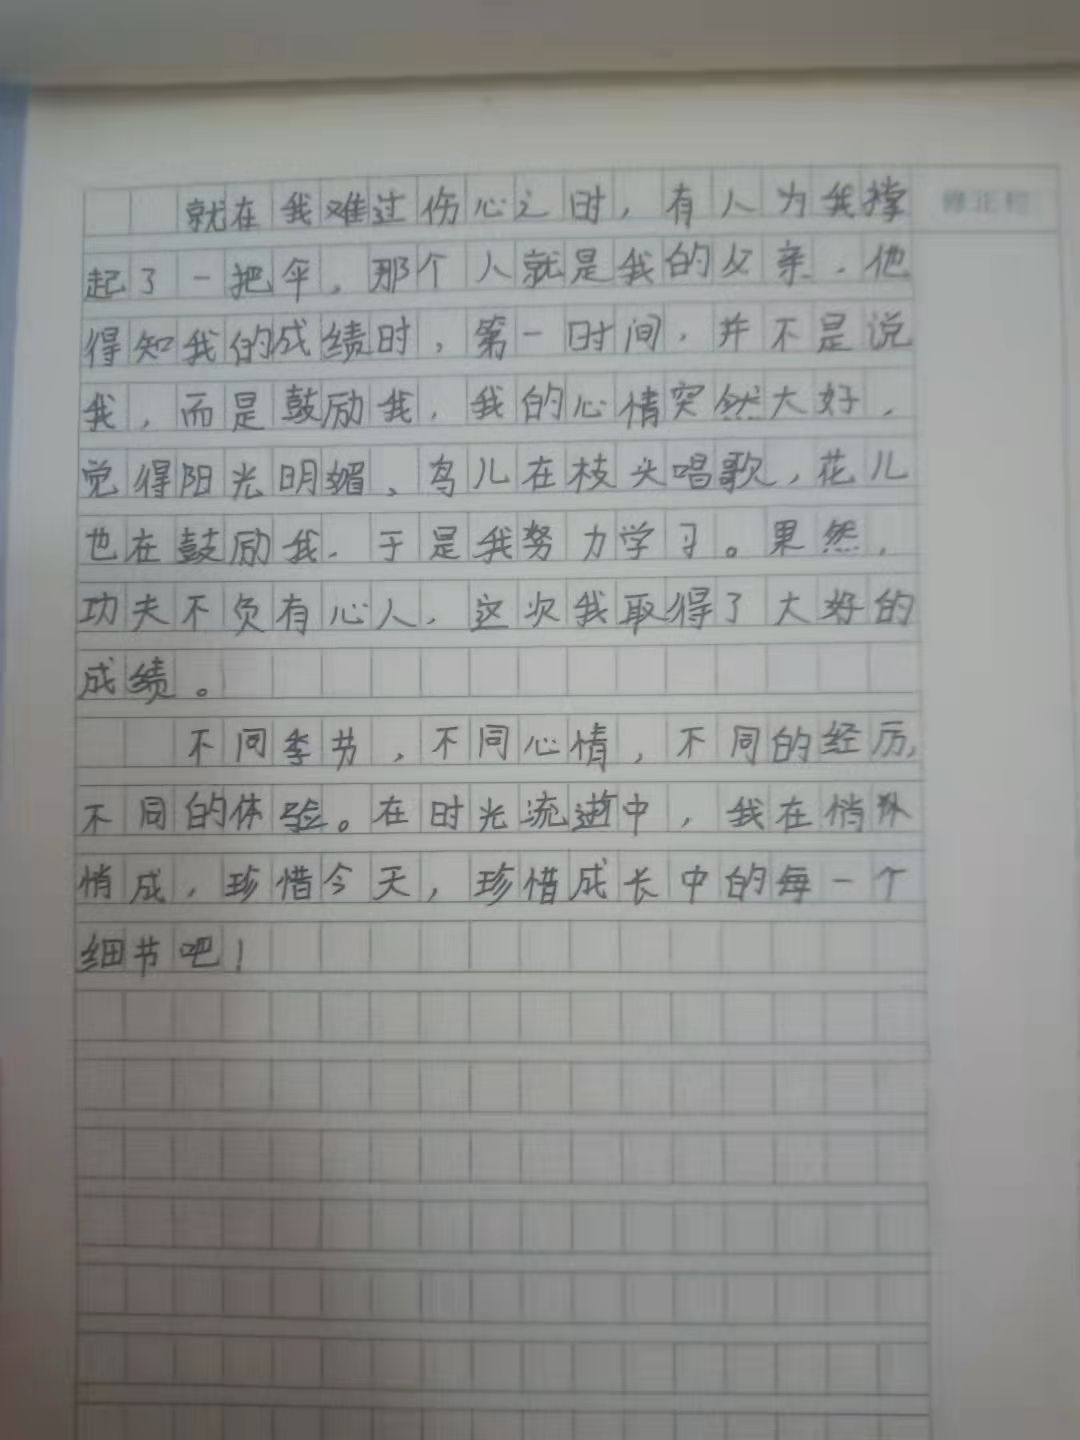 修正栏
就在我难过伤心之时，有人为我撑
起了一把伞，那个人就是我的父亲．他
得知我的成绩时，第一时间．并不是说
我，而是鼓励我．我的心情突然大好，
觉得阳光明媚、鸟儿在枝头唱歌，花儿
也在鼓励我．于是我努力学习。果然，
功夫不负有心人．这次我取得了大好的
成绩。
不同季节，不同心情，不同的经历，
不同的体验。在时光流逝中，我在悄
悄成，珍惜今天，珍惜成长中的每一个
细节吧！